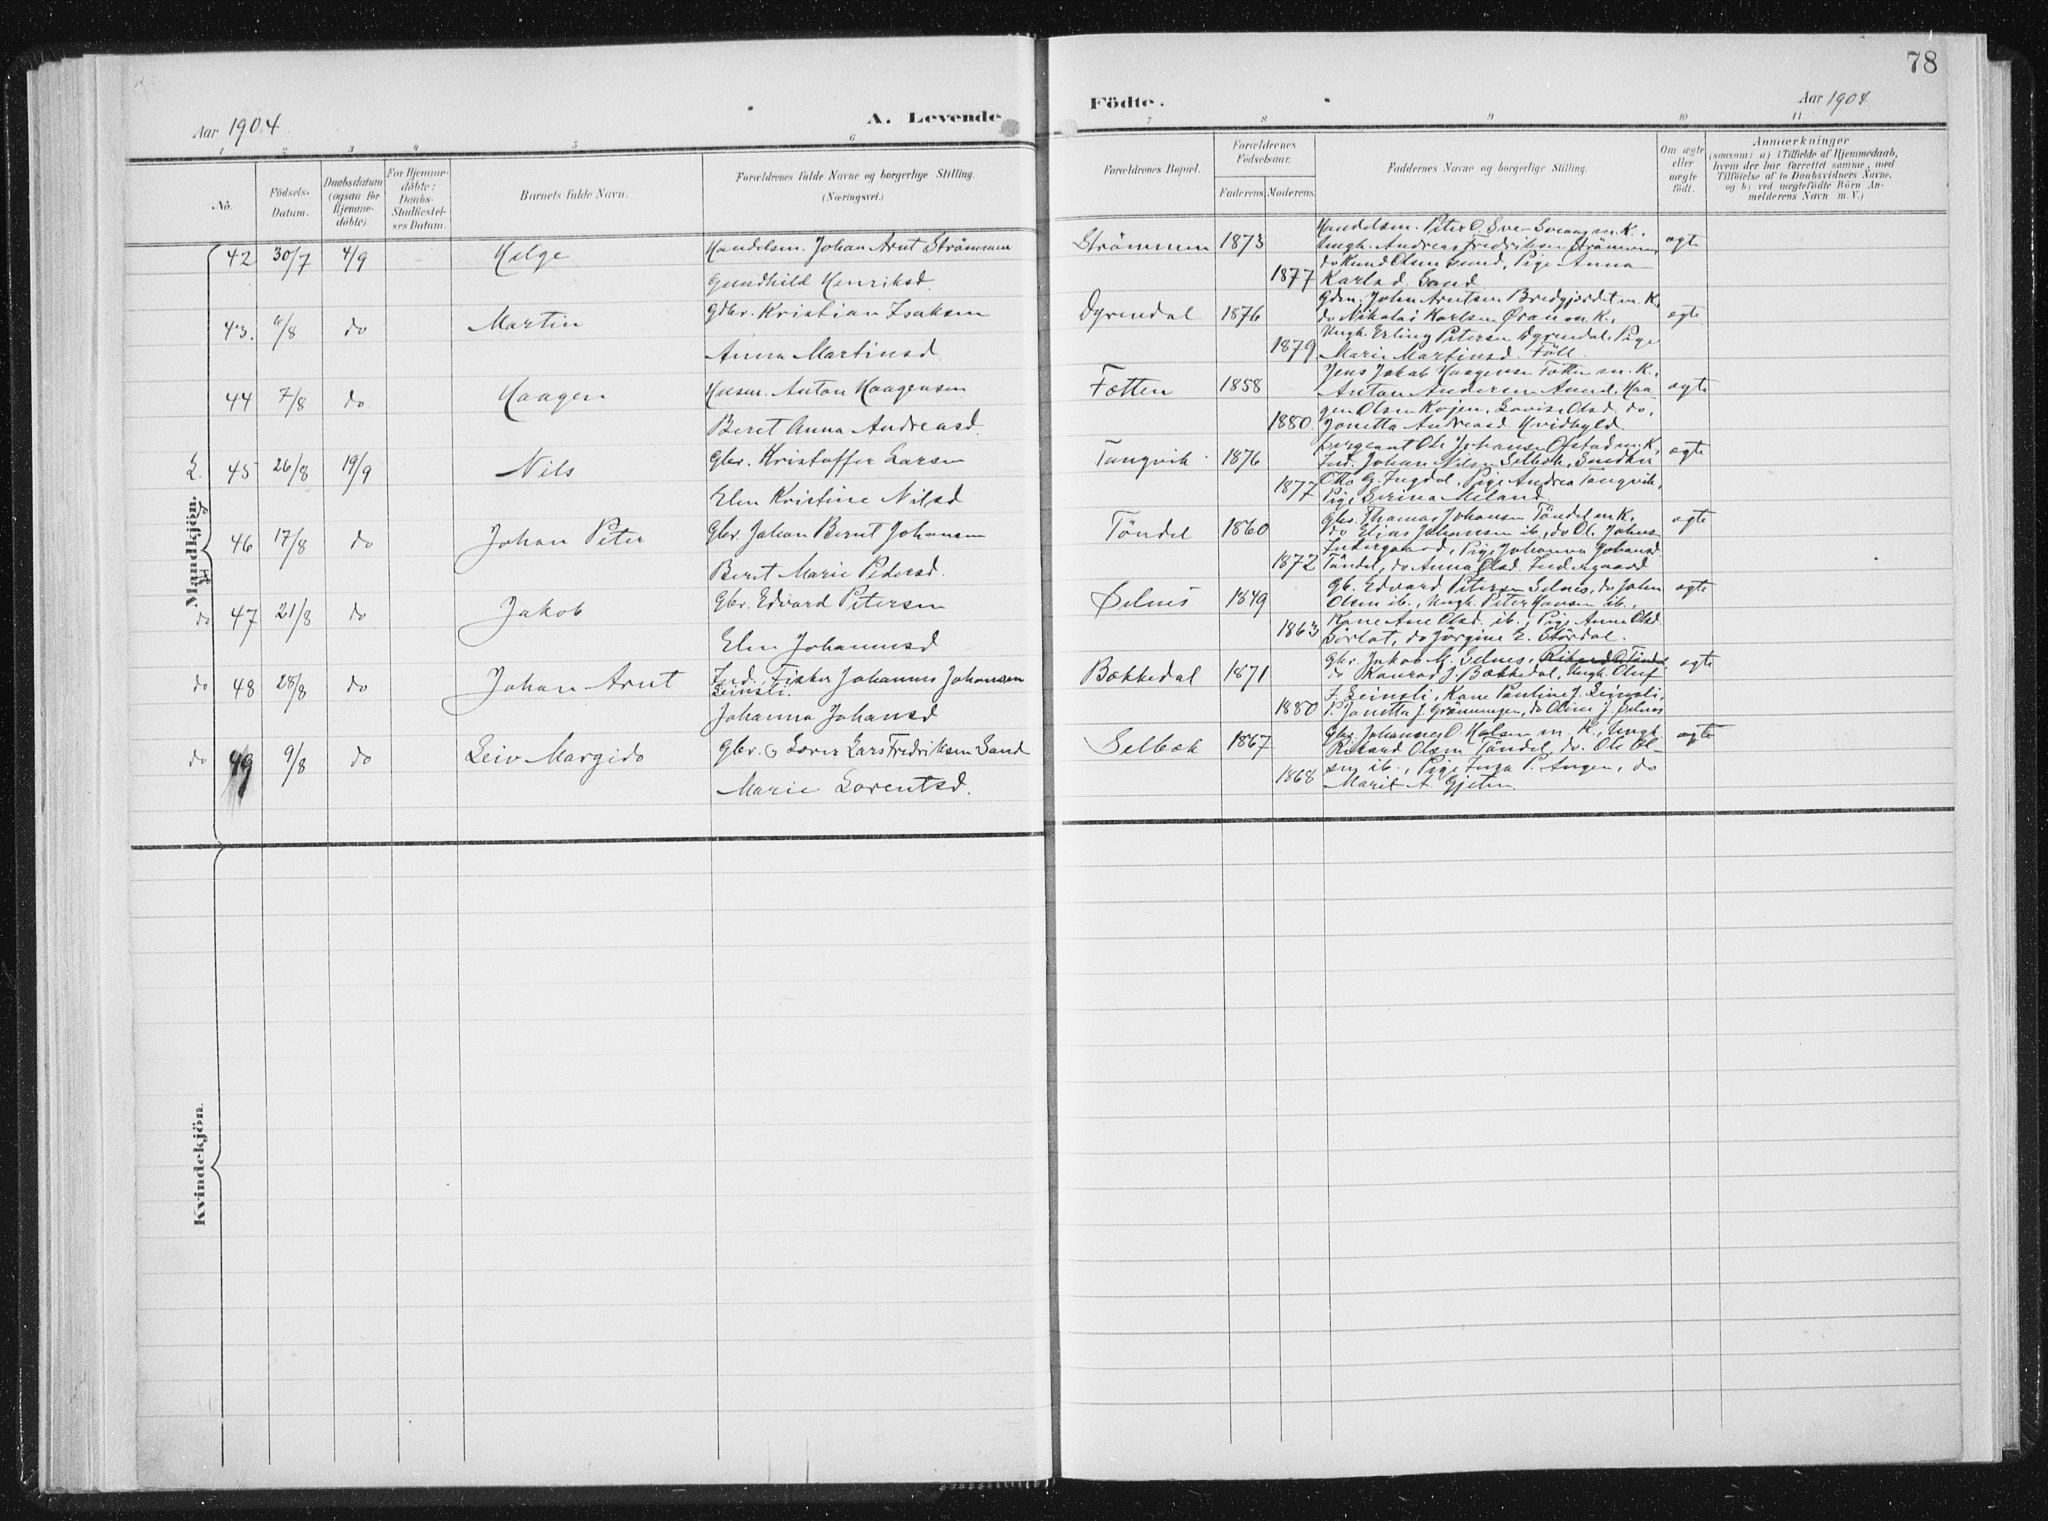 78
Aar 1904.
A. Levende
Födte.
Aar 1904
1 2 3 4 5 6 7 8 9 10 11
Nö.
Födsels-
Datum.
Daabsdatum
(ogsaa for
Hjemme-
döbte).
For Hjemme-
döbte:
Daabs-
Stadfæstel-
ses Datum.
Barnets fulde Navn.
Forældrenes fulde Navne og borgerlige Stilling.
(Næringsvei.)
Forældrenes Bopæl.
Forældrenes
Födselsaar.
Faderens. Moderens.
Faddernes Navne og borgerlige Stilling.
Om ægte
eller
uægte
födt.
Anmærkninger
(saasom: a) i Tilfælde af Hjemmedaab,
hvem der har forrettet samme, med
Tilföielse af to Daabsvidners Navne,
og b) ved uægtefödte Börn An-
melderens Navn m. V.)
Mandkjön.
42 30/7 4/9 Helge
Handelsm. Johan Arnt Strömmen
Gundhild Henriksd.
Strömmen 1873
1877
Handelsm. Peter O. Sve- Sveang m. K.,
Ungk. Andreas Fredriksen Strömmen,
do Knud Olsen Sund, Pige Anna
Karlsd. Sand.
ægte
43. 6/8 do Martin
Gbr. Kristian Isaksen
Anna Martinsd.
Dyrendal 1876
1879
Gdm. John Arntsen Bredgjærdet m. K.
do Nikolai Karlsen Øran m. K.,
Ungk. Erling Petersen Dyrendal, Pige
Marie Martinsd. Föll.
ægte
44 7/8 do Haagen
Husm. Anton Haagensen
Beret Anna Andreasd.
Fætten 1858
1880.
Jens Jakob Haagensen Fætten m. K.,
Anton Andersen Aune, Haa-
gen Olsen Kojen, Lovise Olsd. do,
Jonetta Andreasd. Hvidbyld.
ægte
L. 45 26/8 19/9 Nils
Gbr. Kristoffer Larsen
Elen Kristine Nilsd
Tangvik 1876
1877
Sergeant Ole Johansen Opstad m. K,
Ind. Johan Nilsen Selbæk, Snedker
Otto G. Ingdal, Pige Andrea Tangvik,
Pige Serina Meland.
ægte
46 17/8 do Johan Peter
Gbr. Johan Bernt Johansen
Beret Marie Petersd.
Töndel 1860
1872
Gbr. Thomas Johansen Töndel m. K.
do Elias Johansen ib, do Ol. Johns.
Indergaard, Pige Johanna Johansd
Töndel, do Anna Olsd. Indergaard
ægte
do 47 21/8 do Jakob
Gbr. Edvard Petersen
Elen Johannesd
Selnes 1849
1863
Gb. Edvard Petersen Selnes, do John
Olsen ib., Ungk. Peter Hansen ib.,
Kone Ane Olsd. ib., Pige Anna Olsd
Sörlat, do Jörgine E. Stördal.
ægte
do 48 28/8 do Johan Arnt
Ind. Fisker Johannes Johansen
Leinsli.
Johanna Johansd
Bækkedal 1871
1880
Gbr. Jakob M. Selnes, Rikard O. Töndel
do Konrad J. Bækkedal, Ungk. Oluf
J. Leinsli, Kone Pauline J. Leinsli,
P. Jonetta J. Grönningen, do Oline J. Selnes
ægte
do 49 9/8 do Leiv Margido
Gbr. & Larer Lars Fredriksen Sand
Marie Lorentsd.
Selbæk 1867
1868
Gbr. Johannes O. Halsen m. K., Ungk
Rikard Olsen Töndel, do. Ole Ol-
sen ib., Pige Inga P. Angen, do
Marit A. Gjeten.
ægte
Kvindekjön.